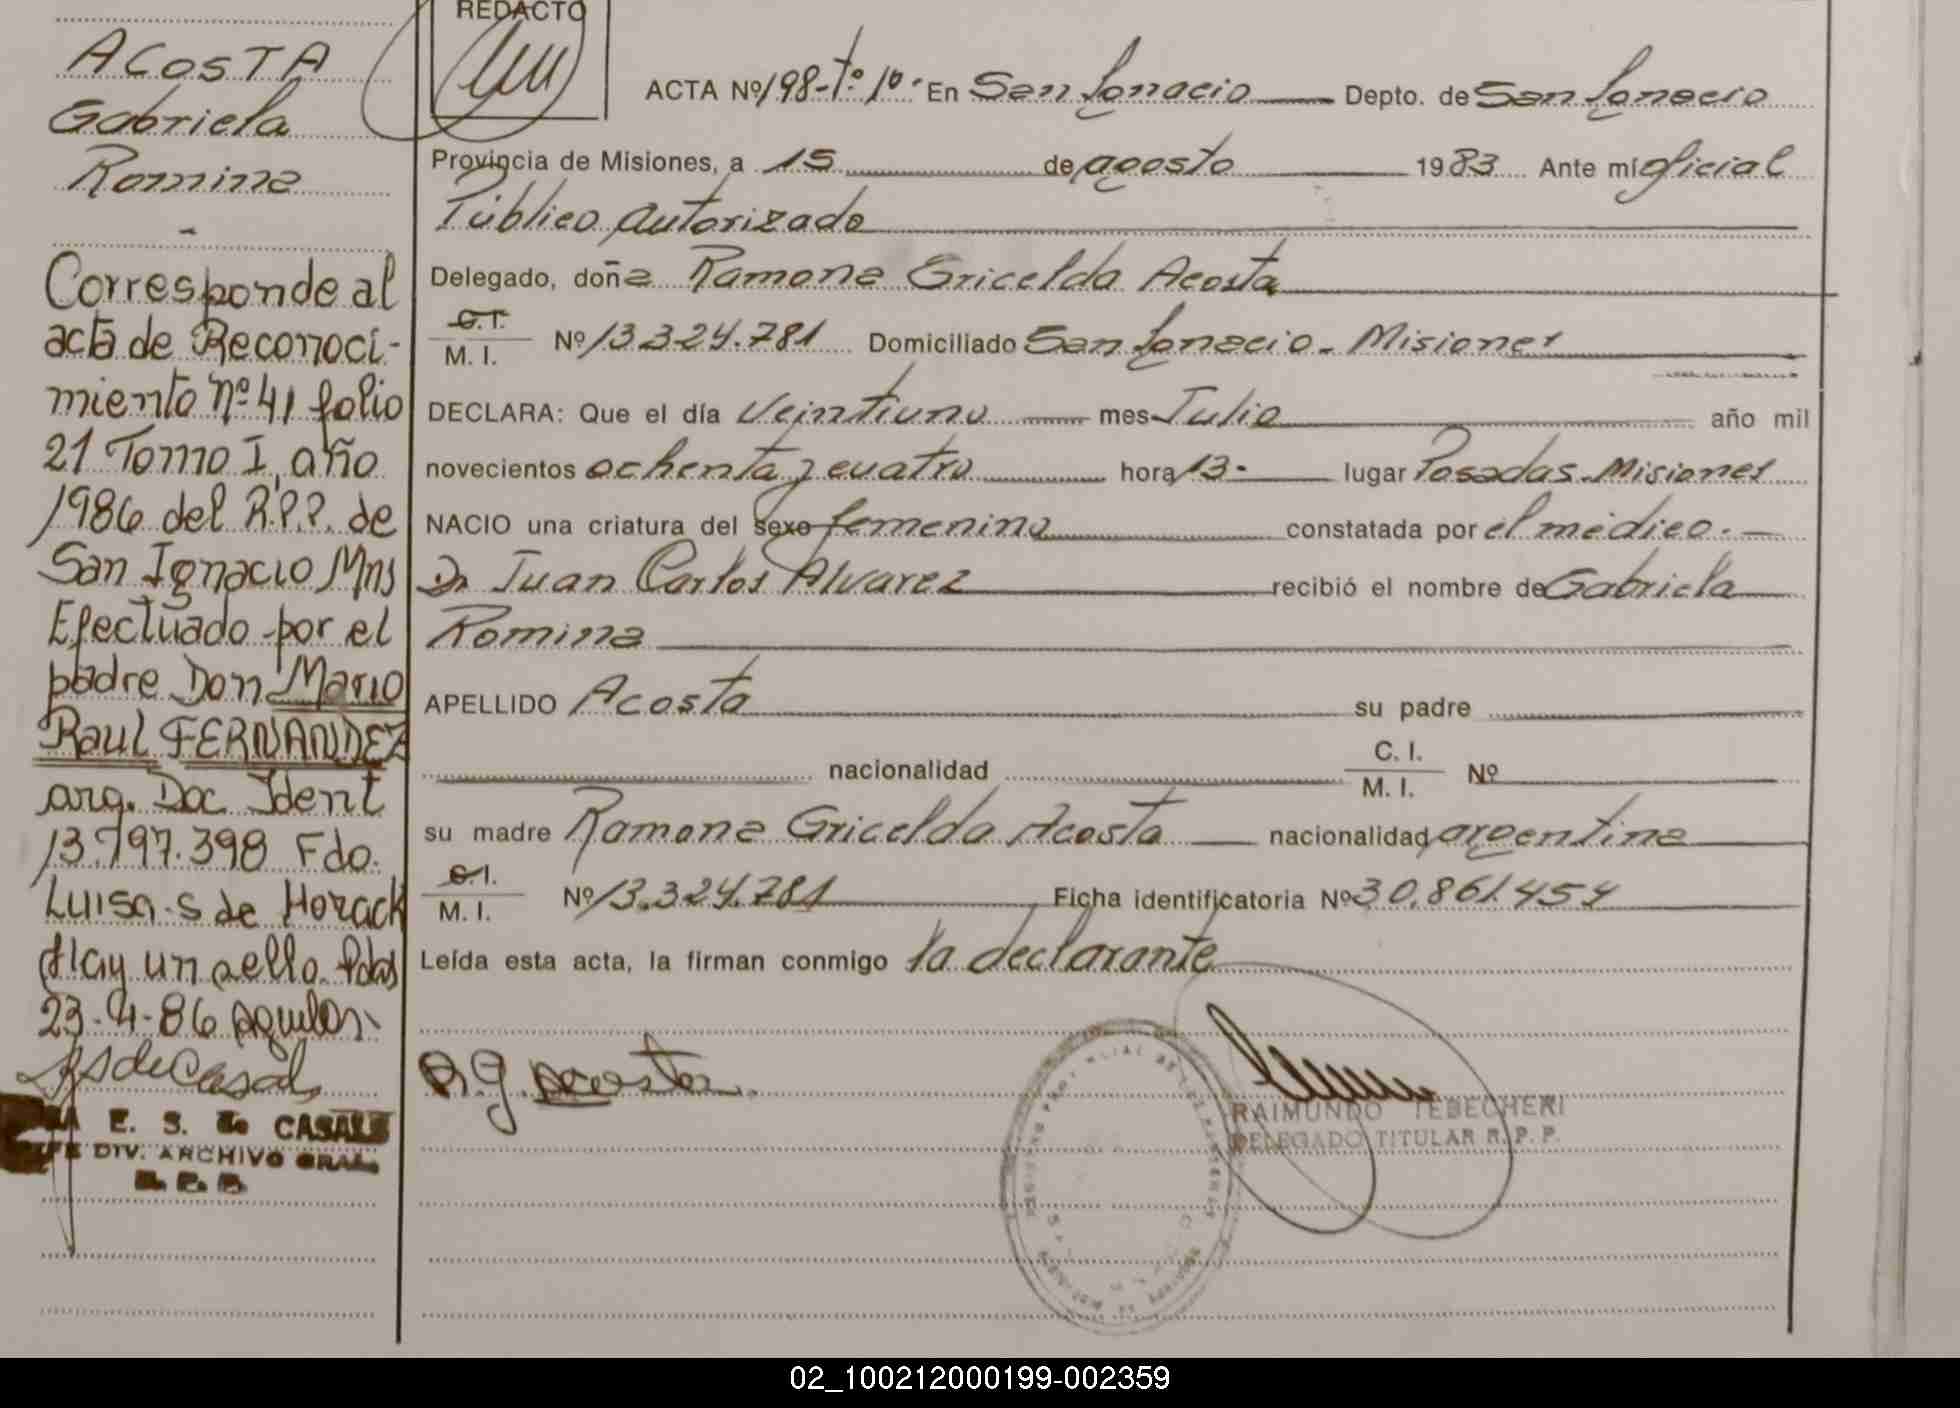 ACOSTA
Gabriela
Romina
-
Corresponde al
acta de Reconoci-
miento nº 41 folio
21 Tomo I, año
1986 del R.P.P. de
San Ignacio Mns
Efectuado por el
padre Don Mario
Raul FERNANDEZ
arg. Doc. Ident
13.797.398 Fdo.
Luisa S de Horack
Hay un sello. Pdas
23-4-86
E. S. de CASALS
DIV. ARCHIVO GRAL.
REDACTO
ACTA Nº 198-Tº 1º. En San Ignacio Depto. de San Ignacio
Provincia de Misiones, a 15 de agosto 1983 Ante mí oficial
Público autorizado
Delegado, doña Ramona Gricelda Acosta
C.I.
M. I. Nº 13.324.781 Domiciliado San Ignacio - Misiones
DECLARA: Que el día Veintiuno mes Julio año mil
novecientos ochenta y cuatro hora 13- lugar Posadas - Misiones
NACIO una criatura del sexo femenino constatada por el médico.-
Dr Juan Carlos Alvarez recibió el nombre de Gabriela
Romina
APELLIDO Acosta su padre
nacionalidad C. I.
M. I. Nº
su madre Ramona Gricelda Acosta nacionalidad argentina
C.I.
M. I. Nº 13.324.781 Ficha identificatoria Nº 30.861.454
Leída esta acta, la firman conmigo la declarante
R.G. Acosta.
RAIMUNDO TEBECHERI
DELEGADO TITULAR R.P.P.
02_100212000199-002359